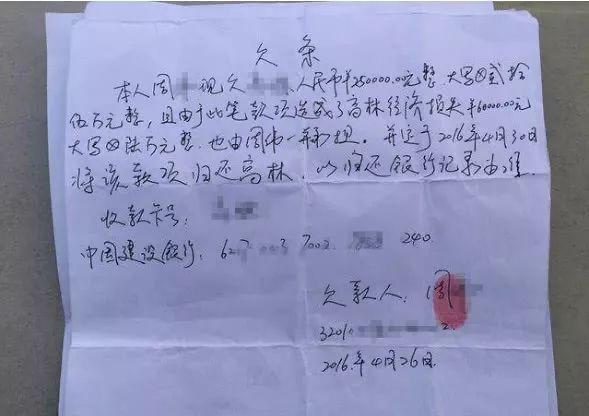 欠条
本人周 现欠 人民币¥250000.00元整 大写⊗贰拾
伍万元整，且由于此笔款项造成了高林经济损失¥60000.00元
大写⊗陆万元整，也由周 一并 。并定于2016年4月30日
将该款项归还高林，以归还银行记录为准
收款卡号：
中国建设银行：62 003 7002 240
欠款人：周
3201 2
2016年4月26日